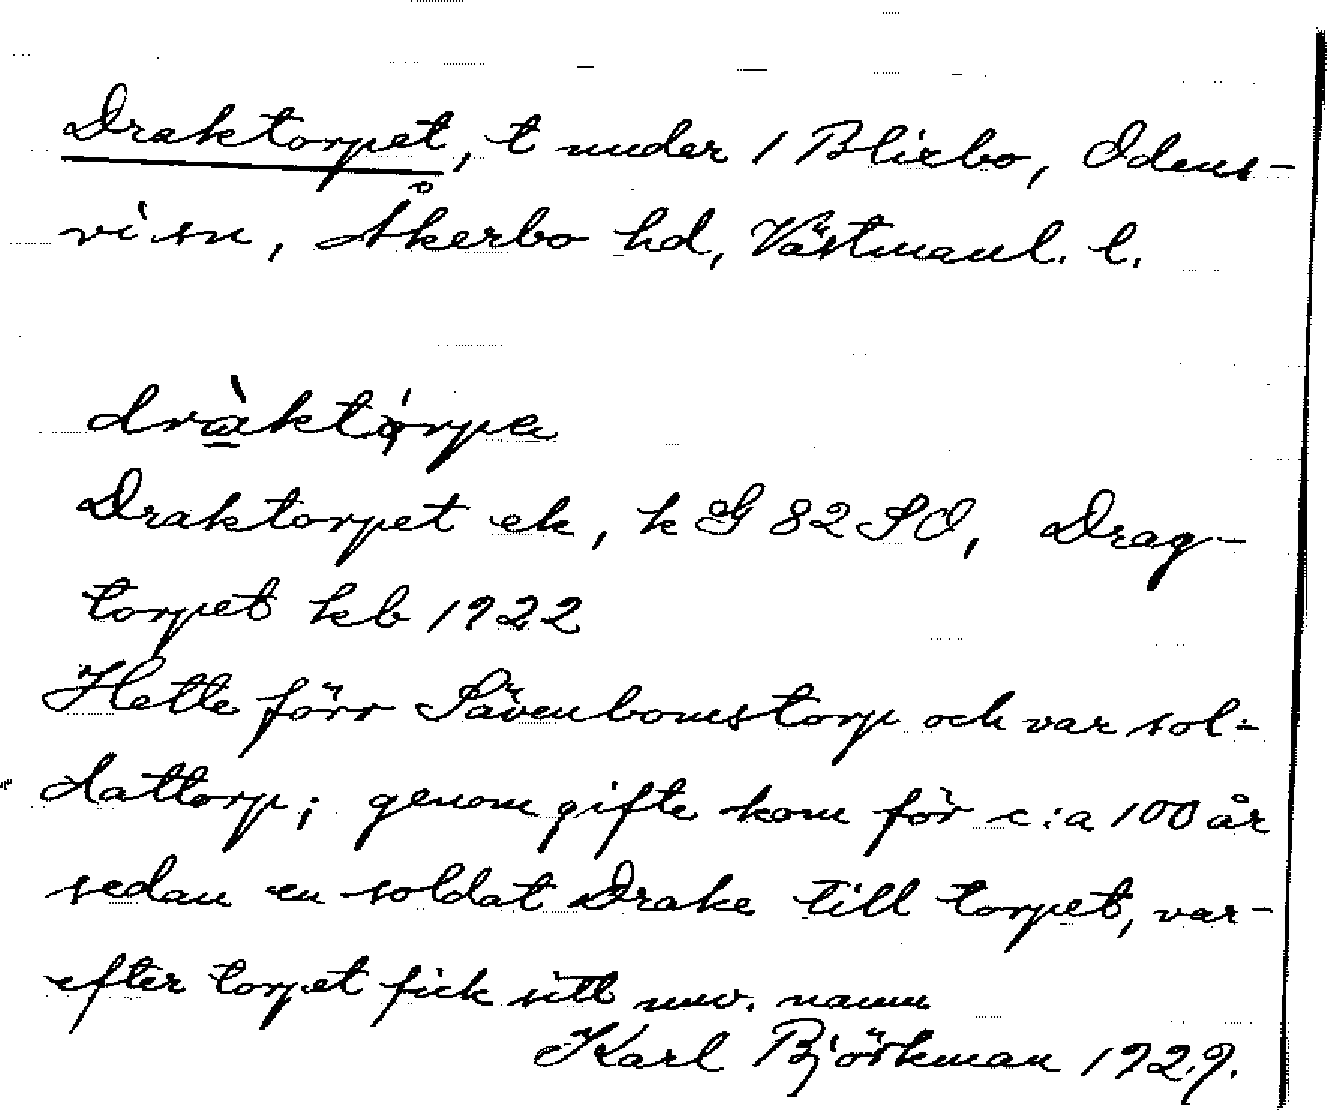 Draktorpet, t under 1 Blixbo, Odens-
visn, Åkerbo hd, Västmanl. l.
dràktǫ́rpa
Draktorpet ek, k G 82 SO, Drag-
torpet kb 1922
Hette förr Sävenbomstorp och var sol-
dattorp; genom gifte kom för c:a 100 år
sedan en soldat Drake till torpet, var-
efter torpet fick sitt nuv. namn
Karl Björkman 1929.